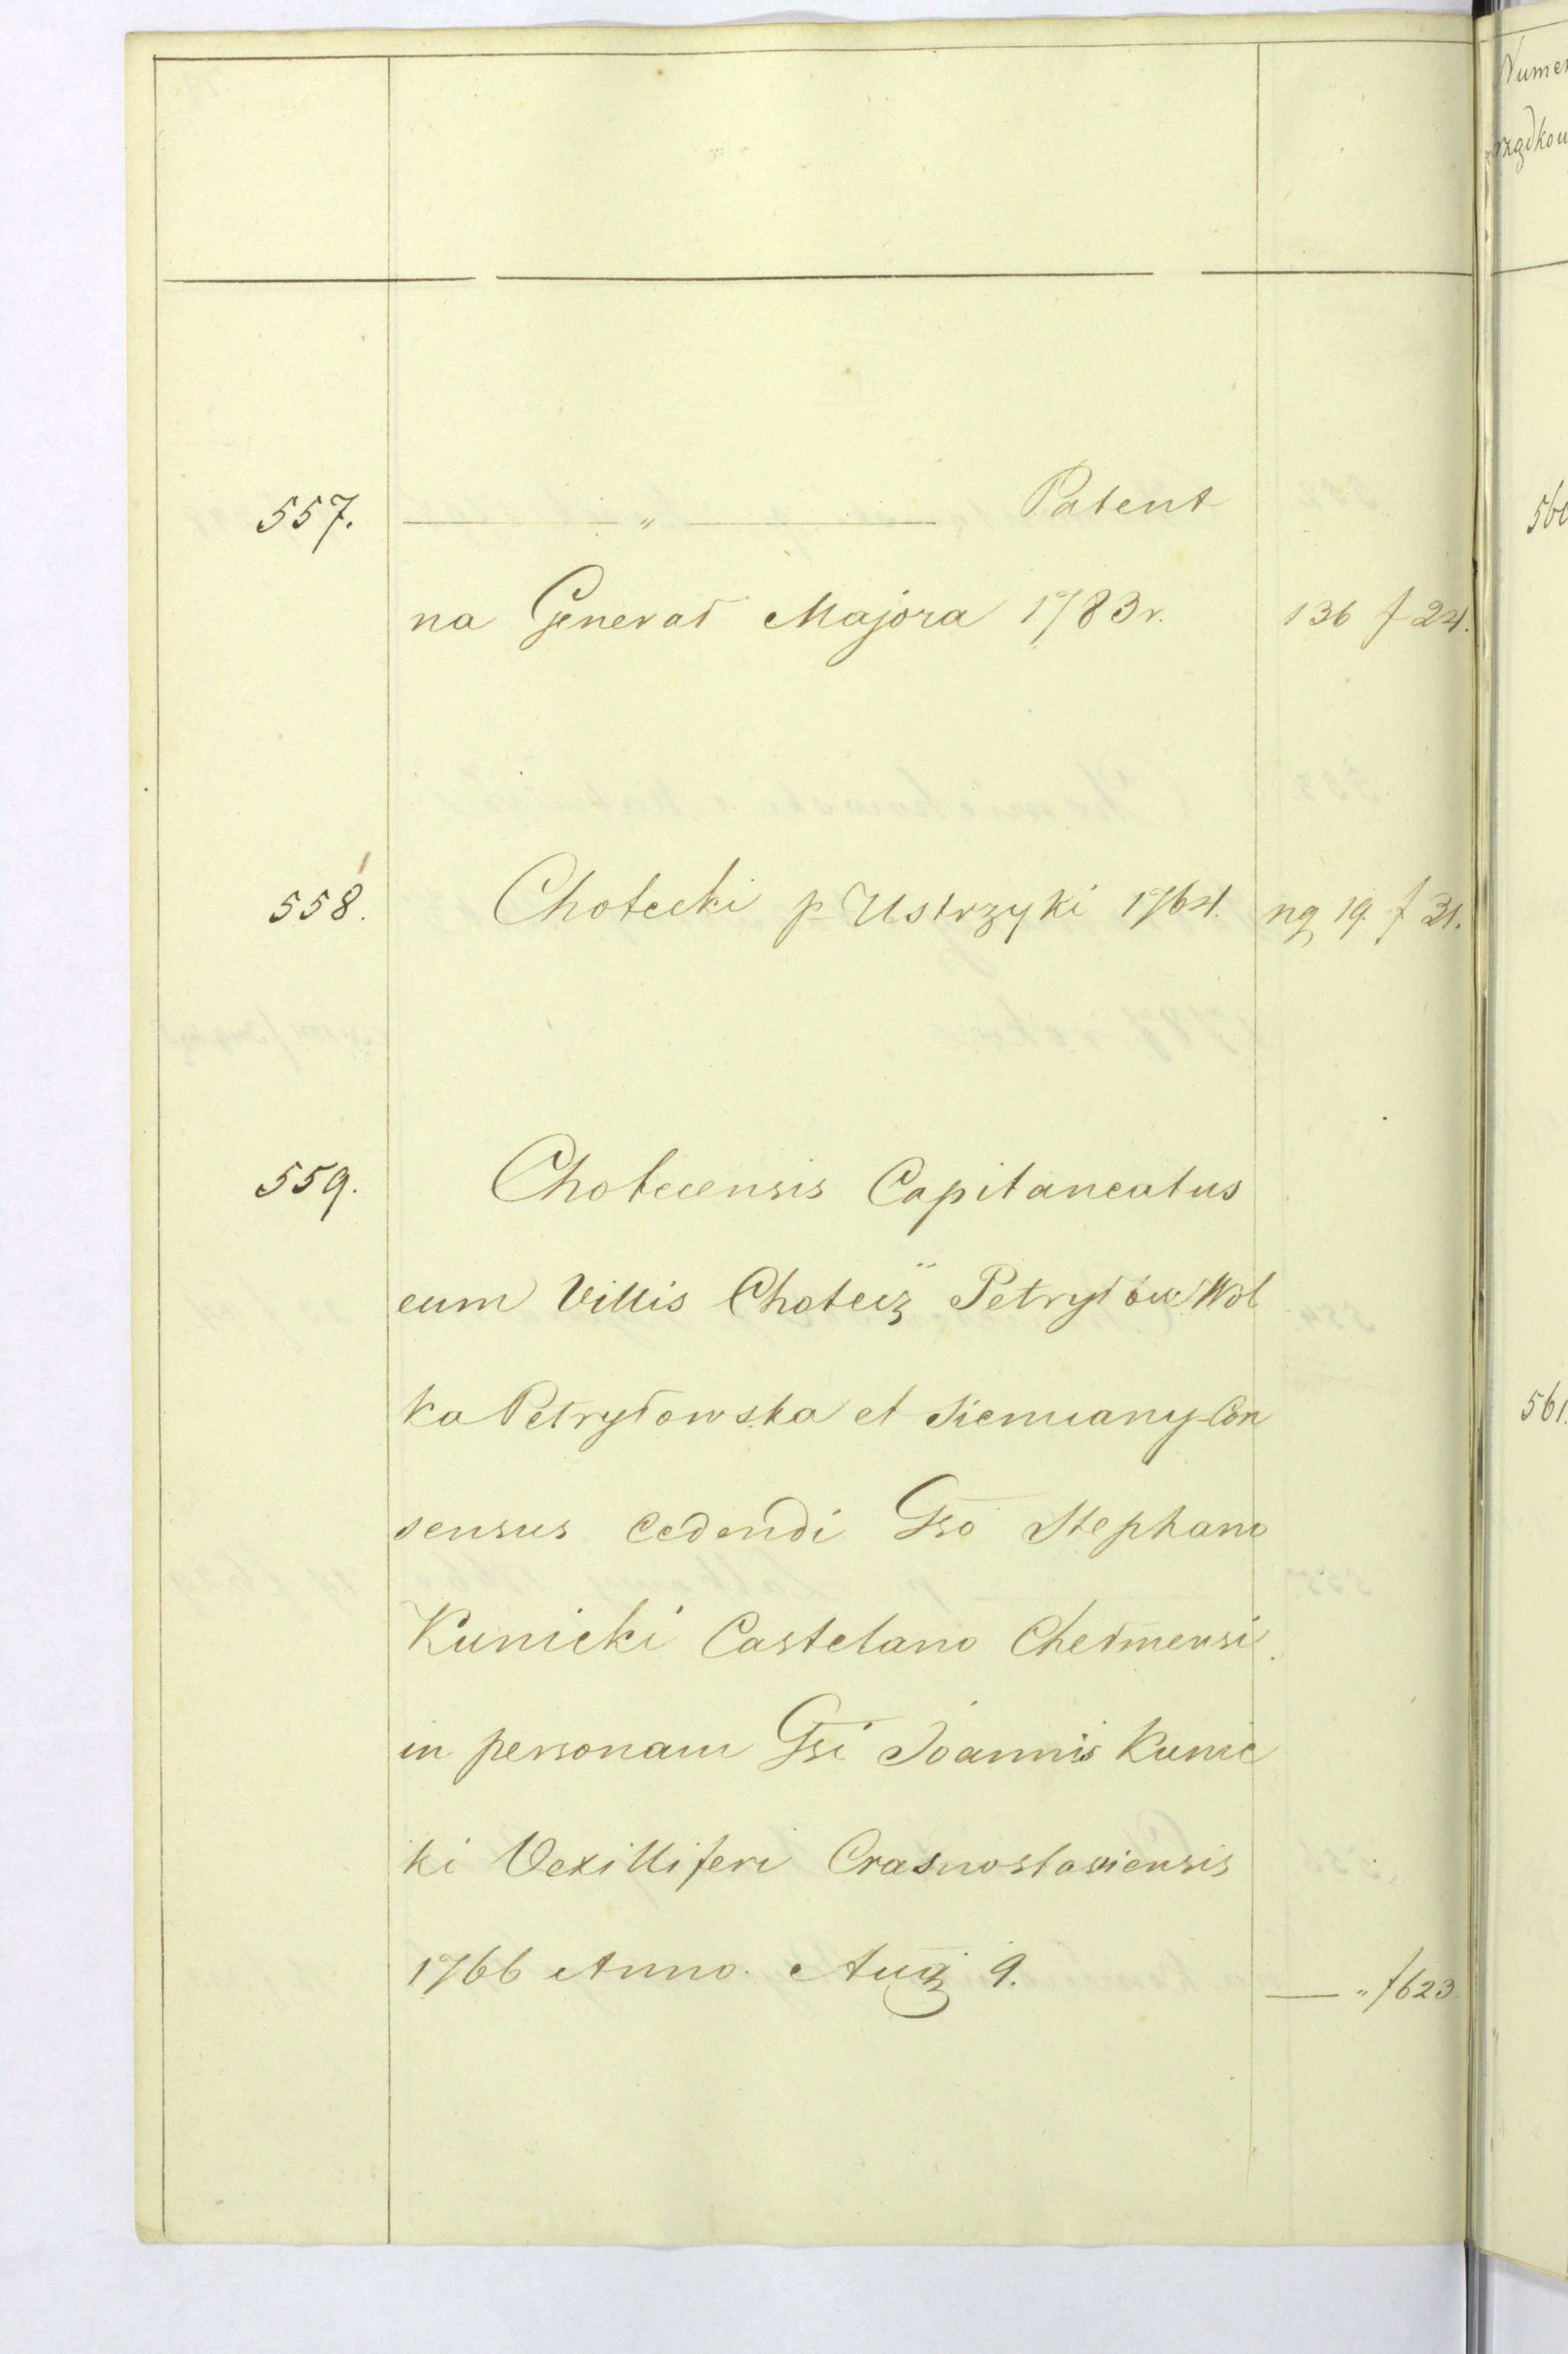 557. — " — Patent
na Generał Majora 1783 r. 136 f 24.
558. Chotecki p Ustrzyki 1764. ng 19. f 31.
559. Chotecensis Capitaneatus
cum Villis Chotecz Petryłów Wol
ka Petryłowska et Siemiany Con
sensus cedendi Gso Stephano
Kunicki Castelano Chełmensi.
in personam Gsi Joannis Kunic
ki Vexilliferi Crasnostaviensis
1766 Anno. Augi 9. — " f 623.
Numer
rządkow
561.